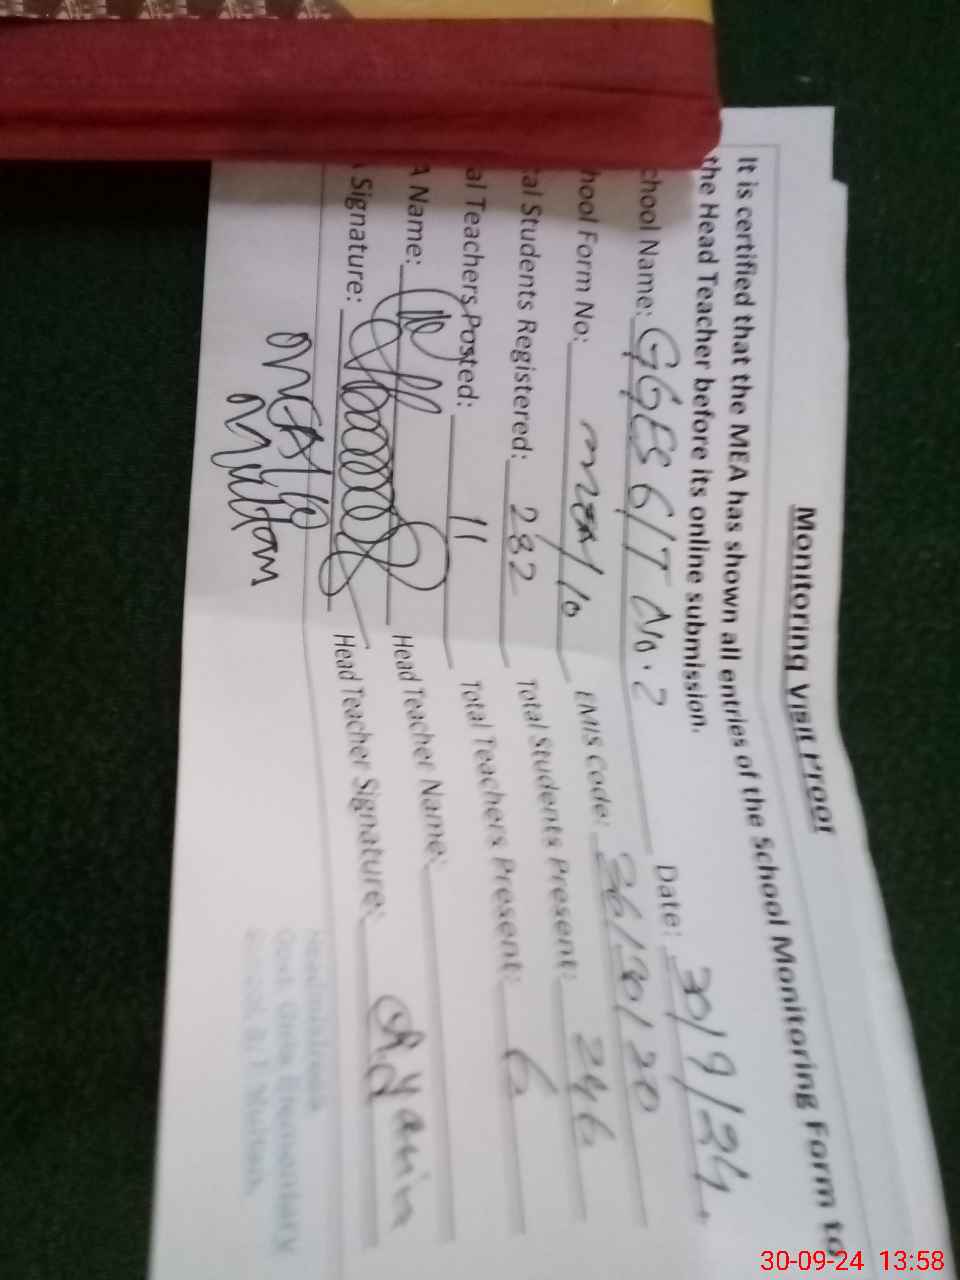 Monitoring Visit Proof
It is certified that the MEA has shown all entries of the School Monitoring Form to
the Head Teacher before its online submission.
chool Name: GGES 6/T No. 2 Date: 30/9/24
hool Form No: MEA/10 EMIS Code: 36130120
al Students Registered: 282 Total Students Present: 246
al Teachers Posted: 11 Total Teachers Present: 6
A Name: Head Teacher Name:
Signature: Head Teacher Signature:
MEA 10
Multan
Headmistress
Govt. Girls Elementary
30-09-24 13:58